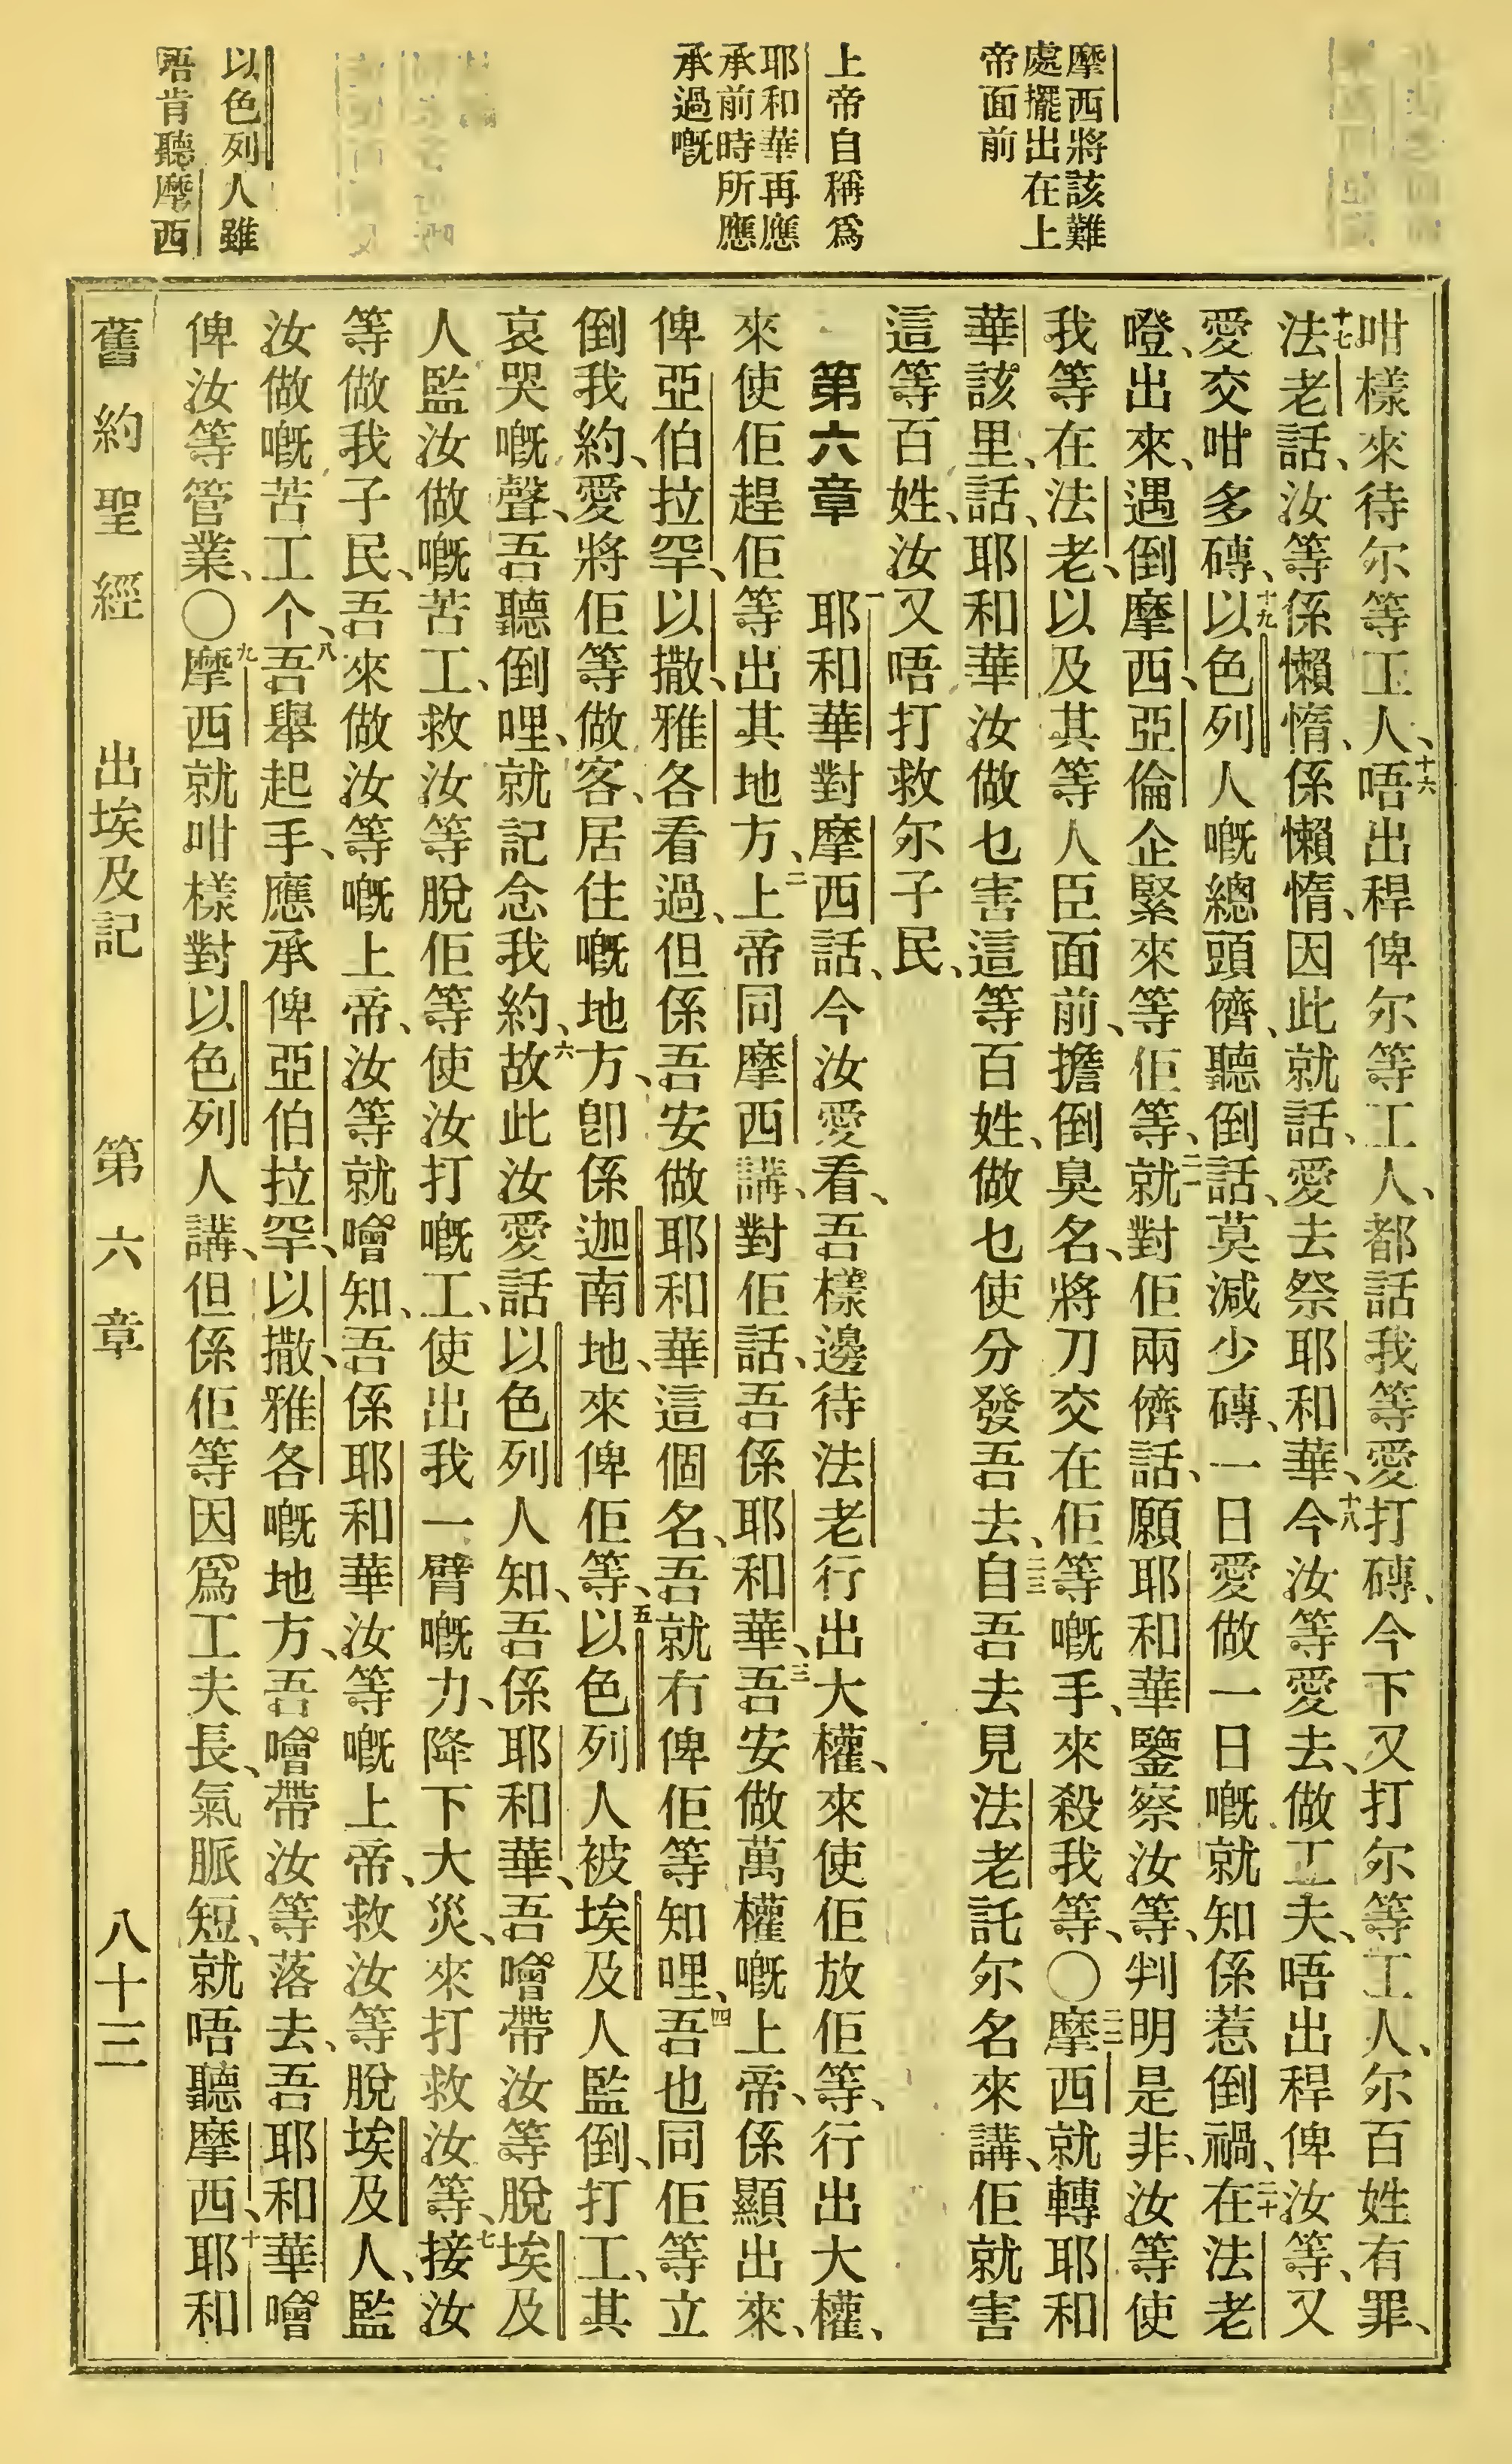 摩西將該難
處擺出在上
帝面前
上帝自稱爲
耶和華再應
承前時所應
承過嘅
以色列人雖
唔肯聽摩西
咁樣來待尔等工人、十六唔出稈俾尔等工人、都話我等愛打磚、今下又打尔等工人、尔百姓有罪、
十七法老話、汝等係懶惰、係懶惰、因此就話、愛去祭耶和華、十八今汝等愛去、做工夫、唔出稈俾汝等、又
愛交咁多磚、十九以色列人嘅總頭儕、聽倒話、莫減少磚、一日愛做一日嘅就知係惹倒禍、二十在法老
嶝、出來、遇倒摩西、亞倫企緊來等佢等、二一就對佢兩儕話、願耶和華鑒察汝等、判明是非、汝等使
我等在法老、以及其等人臣面前、擔倒臭名、將刀交在佢等嘅手、來殺我等、〇二二摩西就轉耶和
華該里、話、耶和華汝做乜害這等百姓、做乜使分發吾去、二三自吾去見法老託尔名來講、佢就害
這等百姓、汝又唔打救尔子民、
第六章 一耶和華對摩西話、今汝愛看、吾樣邊待法老行出大權、來使佢放佢等、行出大權、
來使佢趕佢等出其地方、二上帝同摩西講、對佢話、吾係耶和華、三吾安做萬權嘅上帝、係顯出來、
俾亞伯拉罕、以撒、雅各看過、但係吾安做耶和華這個名、吾就冇俾佢等知哩、四吾也同佢等立
倒我約、愛將佢等做客、居住嘅地方、卽係迦南地、來俾佢等、五以色列人被埃及人監倒、打工、其
哀哭嘅聲、吾聽倒哩、就記念我約、六故此汝愛話以色列人知、吾係耶和華、吾噲帶汝等脫埃及
人監汝做嘅苦工、救汝等脫佢等使汝打嘅工、使出我一臂嘅力、降下大災、來打救汝等、七接汝
等做我子民、吾來做汝等嘅上帝、汝等就噲知、吾係耶和華汝等嘅上帝、救汝等脫埃及人、監
汝做嘅苦工个、八吾舉起手、應承俾亞伯拉罕、以撒、雅各嘅地方、吾噲帶汝等落去、吾耶和華噲
俾汝等管業、〇九摩西就咁樣對以色列人講、但係佢等因爲工夫長、氣脈短、就唔聽摩西、十耶和
舊約聖經 出埃及記 第六章 八十三